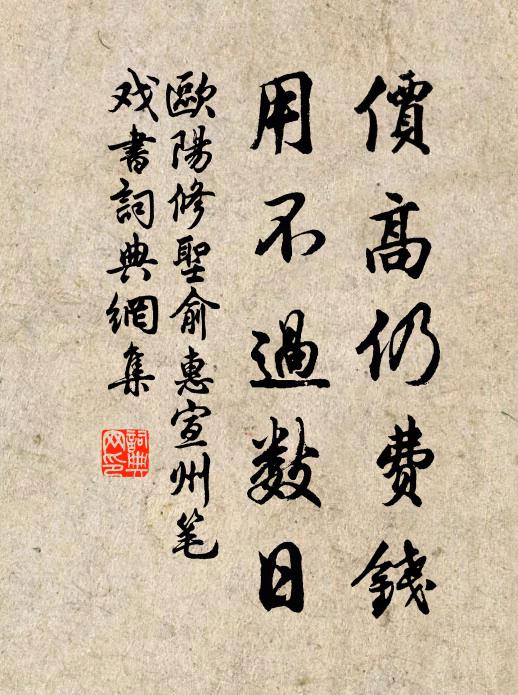 價高仍費錢
用不過數日
歐陽修聖俞惠宣州笔
戏書詞典網集
詞典網印